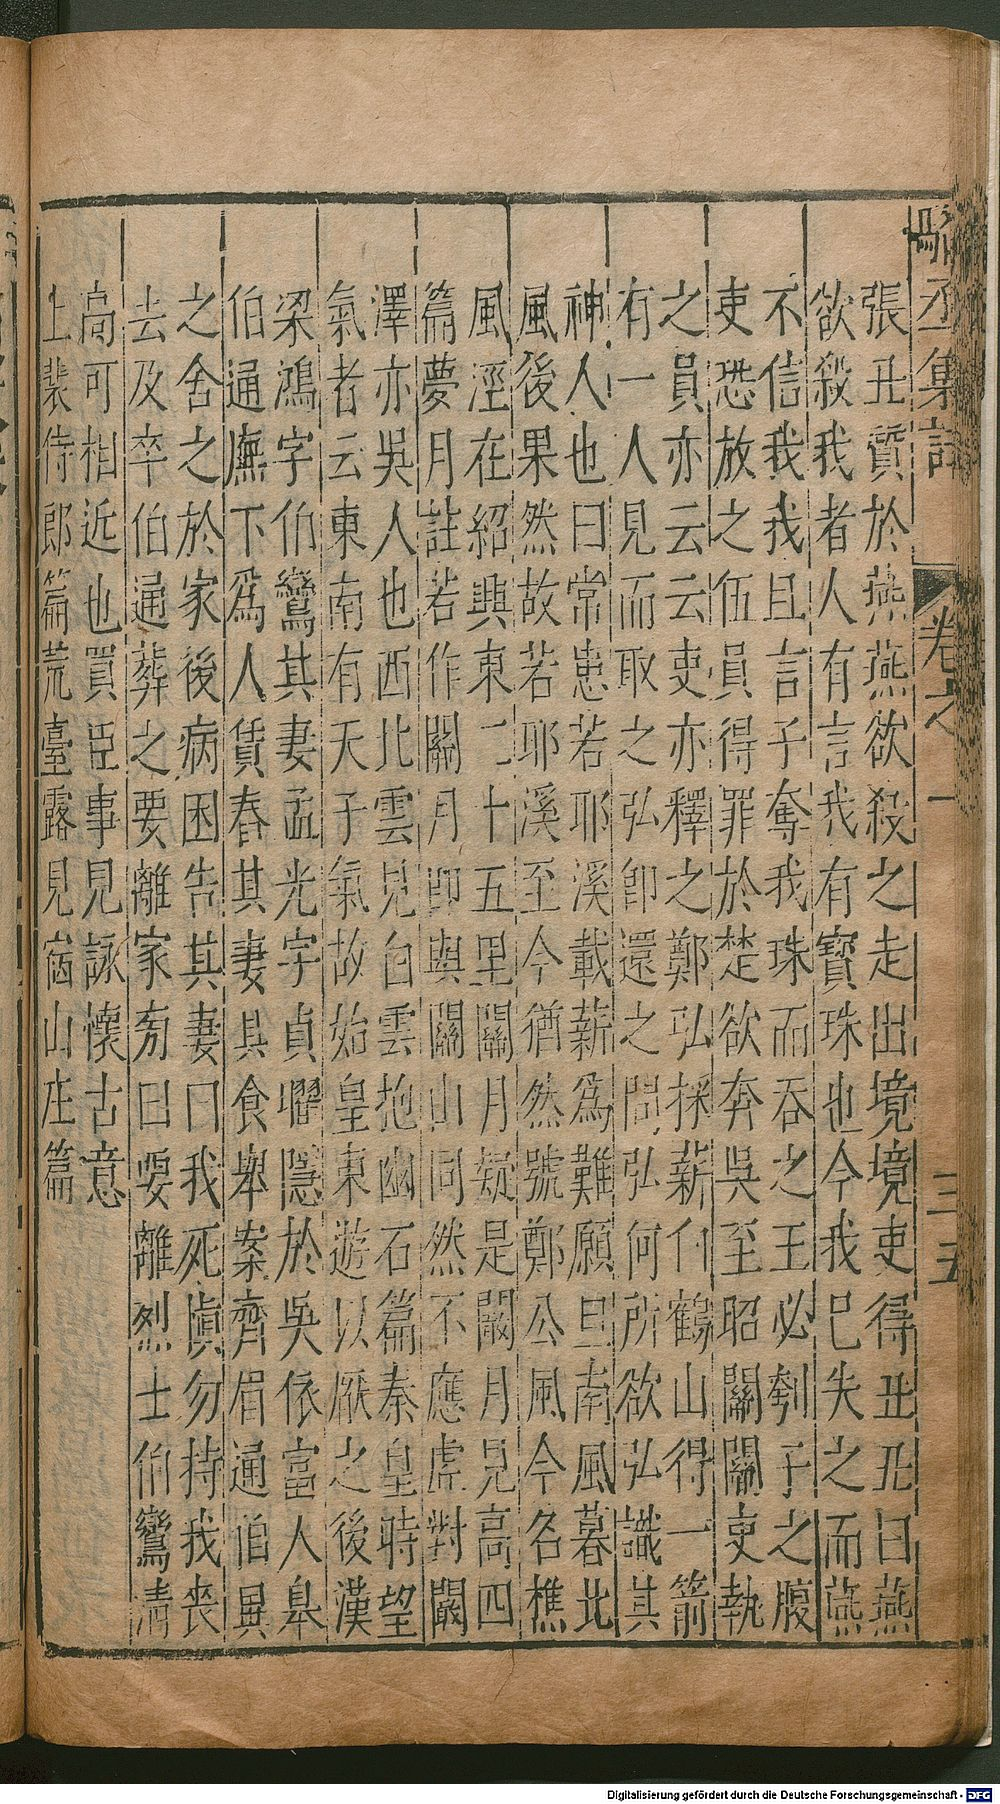 丞集註 卷之一 三五
張丑質於燕燕欲殺之走出境境吏得丑丑曰燕
欲殺我者人有言我有寶珠也今我已失之而燕
不信我我且言子奪我珠而吞之王必刳子之腹
吏恐放之伍員得罪於楚欲奔吳至昭關關吏執
之員亦云云吏亦釋之鄭弘採薪仆鶴山得一箭
有一人見而取之弘卽還之問弘何所欲弘識其
神人也曰常患若耶溪載薪爲難願旦南風暮北
風後果然故若耶溪至今猶然號鄭公風今名樵
風涇在紹興東二十五里關月疑是闕月見高四
篇夢月註若作關月卽與關山同然不應虛對闕
澤亦吳人也西北雲見白雲抱幽石篇秦皇時望
氣者云東南有天子氣故始皇東遊以厭之後漢
梁鴻字伯鸞其妻孟光字貞曜隱於吳依富人皋
伯通廡下爲人賃舂其妻具食舉案齊眉通伯異
之舍之於家後病困告其妻曰我死愼勿持我喪
去及卒伯通葬之要離家旁曰要離烈士伯鸞清
高可相近也買臣事見詠懷古意
上裴侍郎篇荒臺露見宿山庄篇
Digitalisierung gefördert durch die Deutsche Forschungsgemeinschaft - DFG